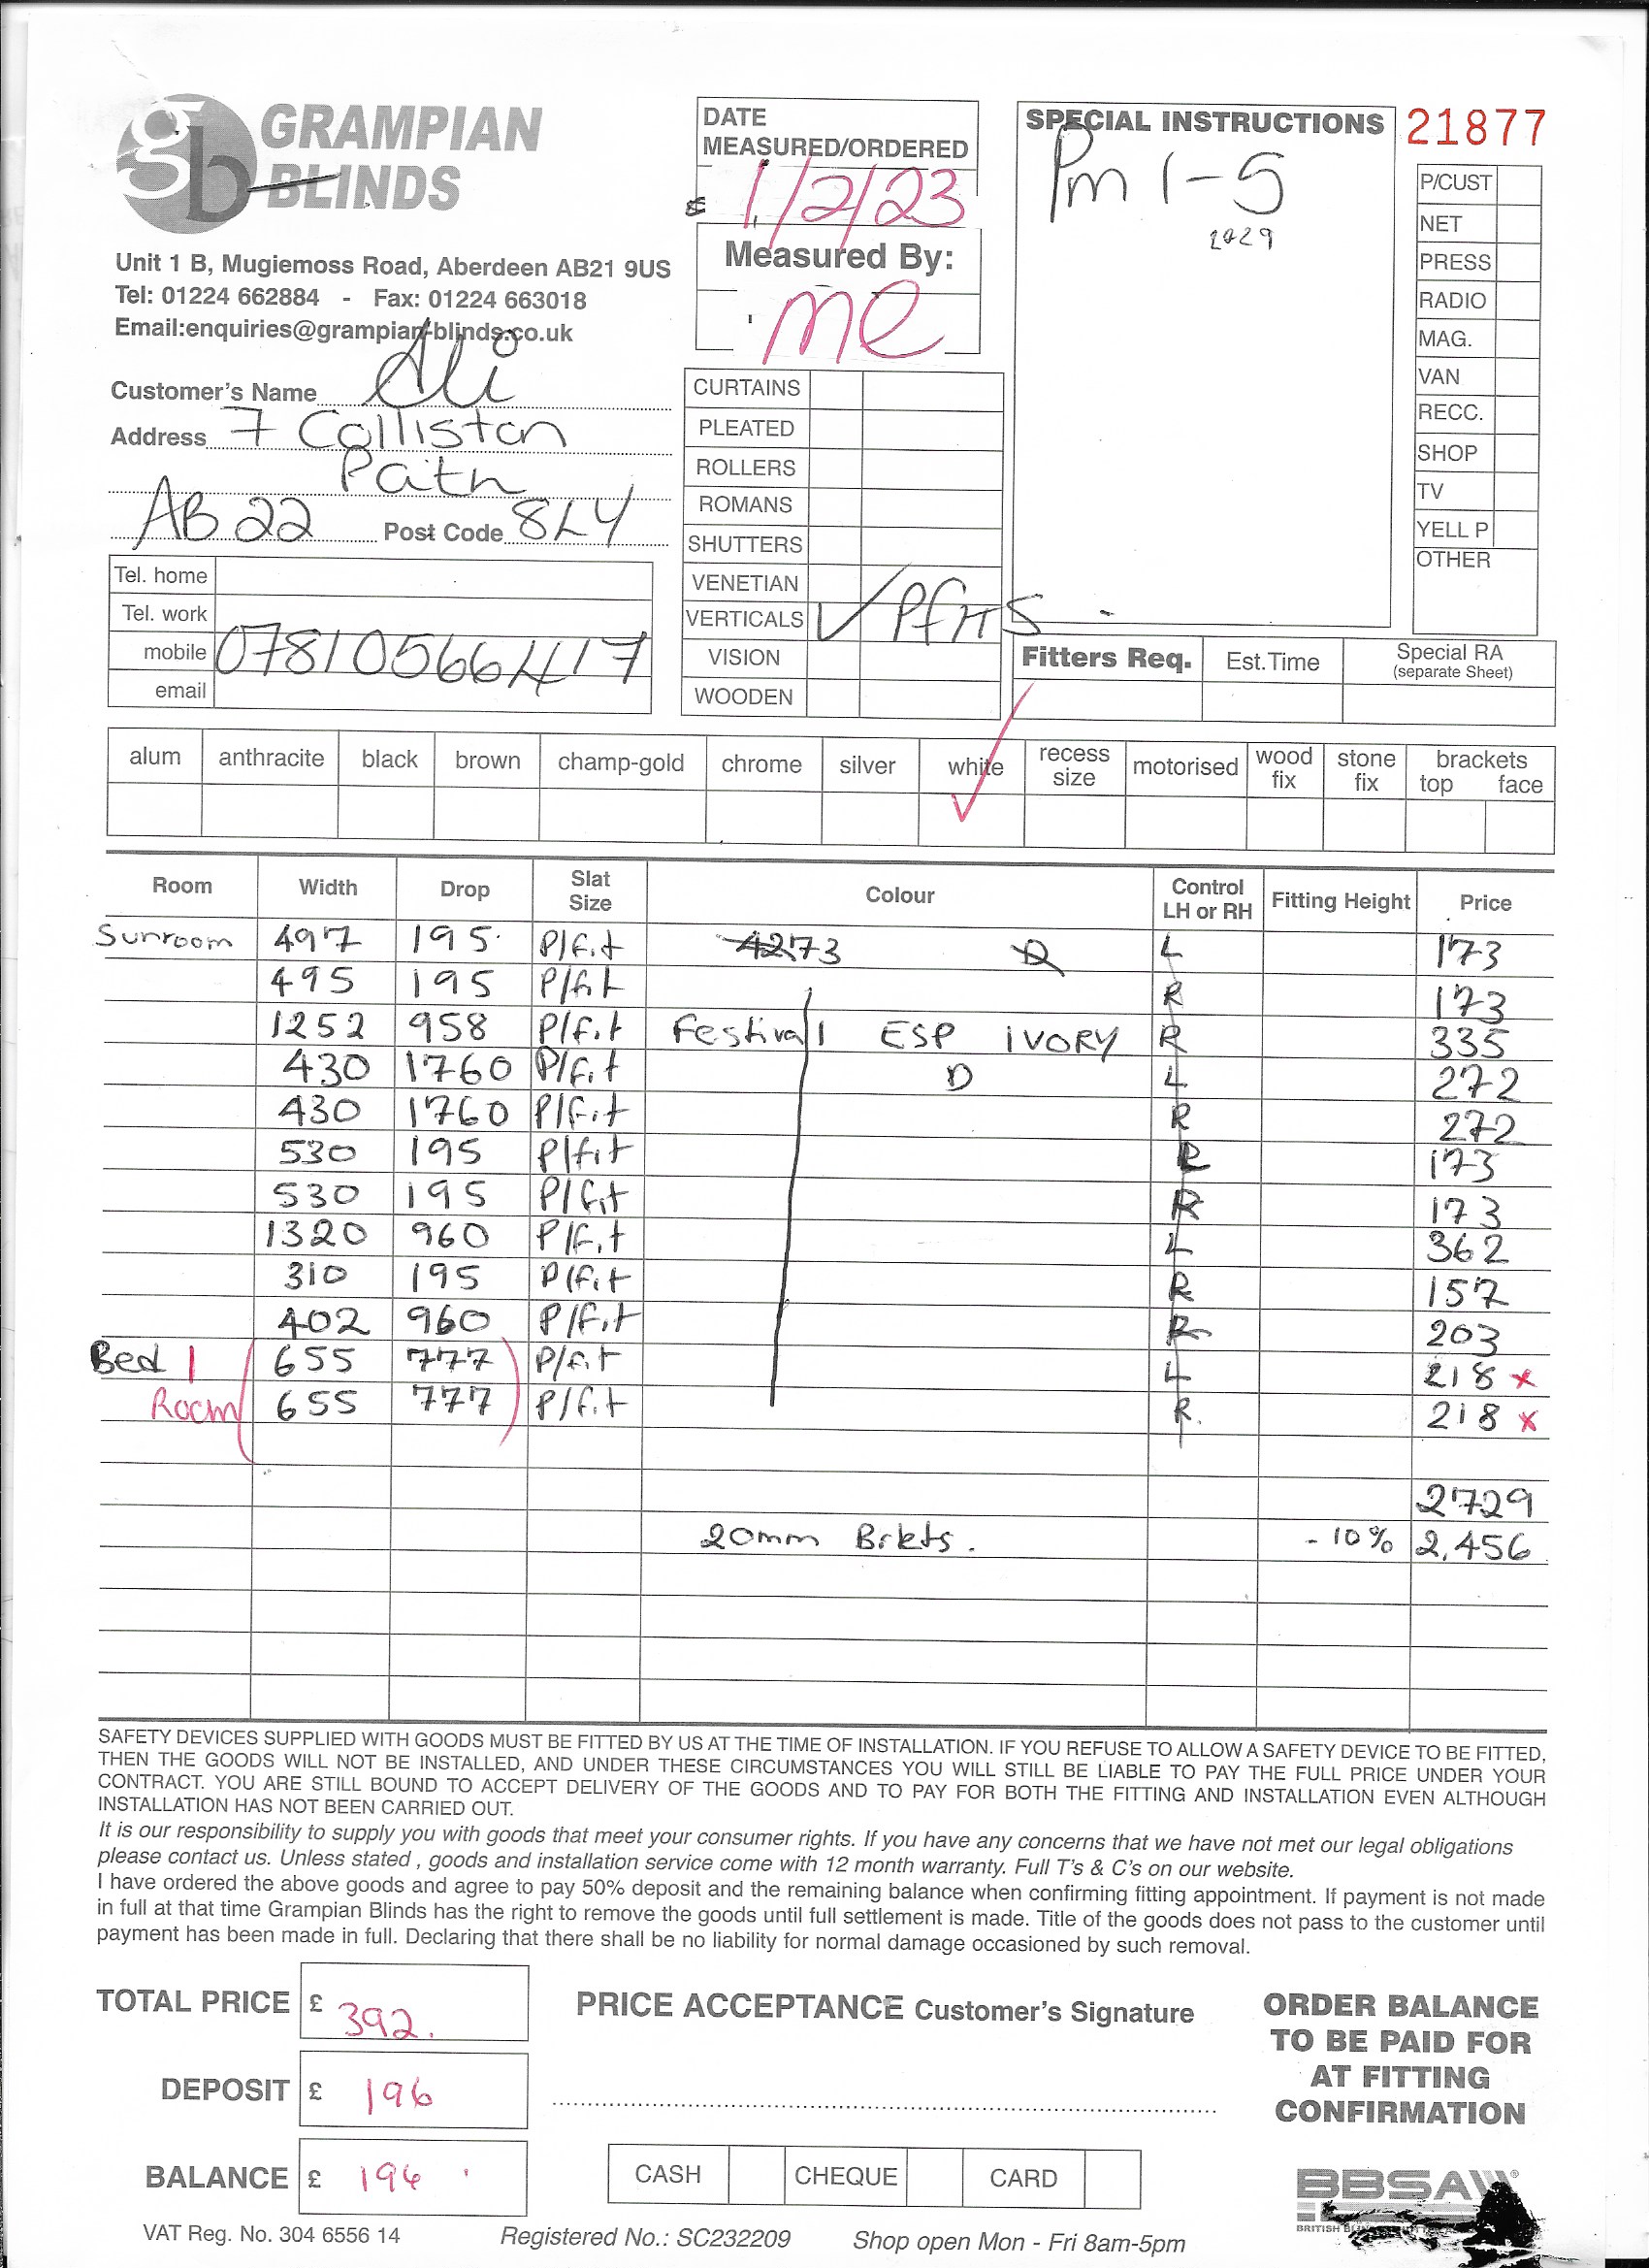 GRAMPIAN
BLINDS
Unit 1 B, Mugiemoss Road, Aberdeen AB21 9US
Tel: 01224 662884 - Fax: 01224 663018
Email:enquiries@grampian-blinds.co.uk
DATE
MEASURED/ORDERED
1/2/23
Measured By:
me
SPECIAL INSTRUCTIONS
Pm 1-5
21877
P/CUST
NET
PRESS
RADIO
MAG.
VAN
RECC.
SHOP
TV
YELL P
OTHER
Customer's Name Ali
Address 7 Colliston
Path
AB22 Post Code 8LY
Tel. home
Tel. work
mobile 07810566417
email
CURTAINS
PLEATED
ROLLERS
ROMANS
SHUTTERS
VENETIAN
VERTICALS ✓ PfHS
VISION
WOODEN
Fitters Req. Est.Time Special RA
(separate Sheet)
alum anthracite black brown champ-gold chrome silver white ✓ recess size motorised wood fix stone fix brackets top face
Room Width Drop Slat Size Colour Control LH or RH Fitting Height Price
Sunroom 497 195 P/fit 4273 L 173
495 195 P/fit R 173
1252 958 P/fit Festival ESP IVORY R 335
430 1760 P/fit D L 272
430 1760 P/fit R 272
530 195 P/fit 173
530 195 P/fit R 173
1320 960 P/fit L 362
310 195 P/fit R 157
402 960 P/fit R 203
Bed 1 655 777 P/fit L 218 x
Room 655 777 P/fit R. 218 x
2729
20mm Brkts. - 10% 2,456
SAFETY DEVICES SUPPLIED WITH GOODS MUST BE FITTED BY US AT THE TIME OF INSTALLATION. IF YOU REFUSE TO ALLOW A SAFETY DEVICE TO BE FITTED,
THEN THE GOODS WILL NOT BE INSTALLED, AND UNDER THESE CIRCUMSTANCES YOU WILL STILL BE LIABLE TO PAY THE FULL PRICE UNDER YOUR
CONTRACT. YOU ARE STILL BOUND TO ACCEPT DELIVERY OF THE GOODS AND TO PAY FOR BOTH THE FITTING AND INSTALLATION EVEN ALTHOUGH
INSTALLATION HAS NOT BEEN CARRIED OUT.
It is our responsibility to supply you with goods that meet your consumer rights. If you have any concerns that we have not met our legal obligations
please contact us. Unless stated , goods and installation service come with 12 month warranty. Full T's & C's on our website.
I have ordered the above goods and agree to pay 50% deposit and the remaining balance when confirming fitting appointment. If payment is not made
in full at that time Grampian Blinds has the right to remove the goods until full settlement is made. Title of the goods does not pass to the customer until
payment has been made in full. Declaring that there shall be no liability for normal damage occasioned by such removal.
TOTAL PRICE £ 392.
DEPOSIT £ 196
BALANCE £ 196
PRICE ACCEPTANCE Customer's Signature
CASH CHEQUE CARD
ORDER BALANCE
TO BE PAID FOR
AT FITTING
CONFIRMATION
BBSA
VAT Reg. No. 304 6556 14 Registered No.: SC232209 Shop open Mon - Fri 8am-5pm